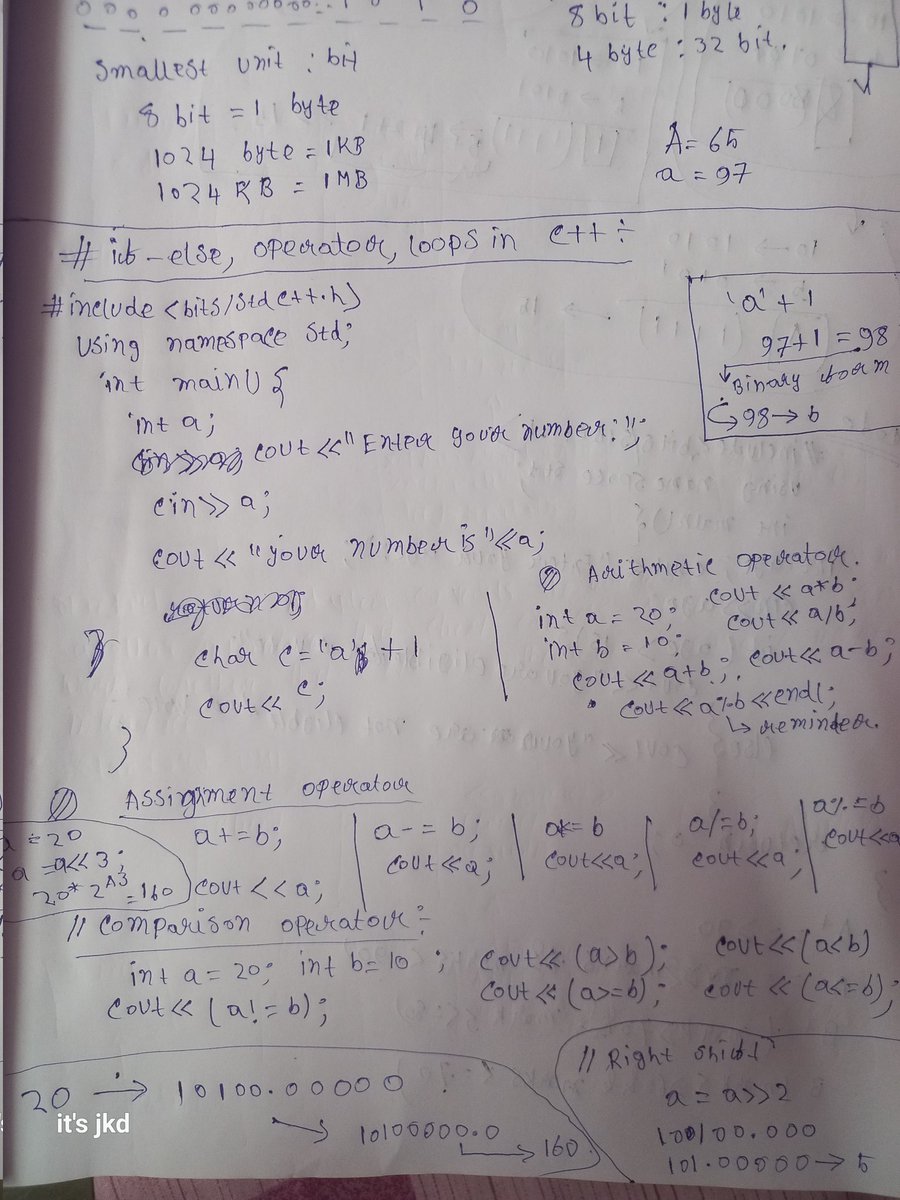 0 0 0 0 0 0 0 0 0 0 0 0 : - 1 0 1 0
8 bit : 1 byte
4 byte : 32 bit.
Smallest unit : bit
8 bit = 1 byte
1024 byte = 1KB
1024 KB = 1MB
A = 65
a = 97
# if - else, operator, loops in C++ :
#include <bits/stdc++.h>
using namespace std;
int main() {
int a;
cout << "Enter your number:";
cin >> a;
cout << "your number is" << a;
char c = 'a' + 1
cout << c;
}
}
'a' + 1
97+1 = 98
Binary form
98 → b
Arithmetic operator.
int a = 20;
int b = 10;
cout << a*b;
cout << a/b;
cout << a+b;
cout << a-b;
cout << a%b << endl;
↳ reminder.
Assignment operator
a = 20
a = a << 3;
20 * 2^3 = 160
a += b;
cout << a;
a -= b;
cout << a;
a *= b
cout << a;
a /= b;
cout << a;
a %= b
cout << a
// Comparison operator :
int a = 20; int b = 10 ; cout << (a > b); cout << (a < b)
cout << (a != b); cout << (a >= b); cout << (a <= b);
20 → 10100.00000
→ 10100000.0
→ 160.
// Right shift
a = a >> 2
100100.000
101.00000 → 5
it's jkd